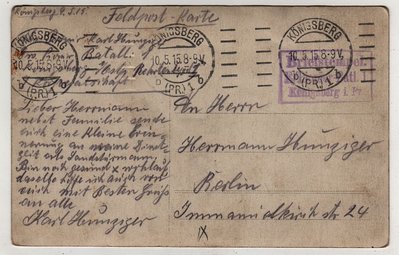 Königsberg 9.5.15
Feldpost-Karte
Karl Hunziger
Batall:
KÖNIGSBERG
10.5.15.8-9V.
(PR)1
b
KÖNIGSBERG
10.5.15.8-9V.
b (PR)1 b
Königsberg i. Pr.
Lieber Herrmann
nebst Familie sende
euch eine kleine Erin-
nerung an meine Dienst-
zeit als Landsturmmann.
Bin noch gesund
daselbe hoffe ich auch von
euch mit besten Gruß
an alle
Karl Hunziger
An Herrn
Herrmann Hunziger
Berlin
Immanuelkirch str 24